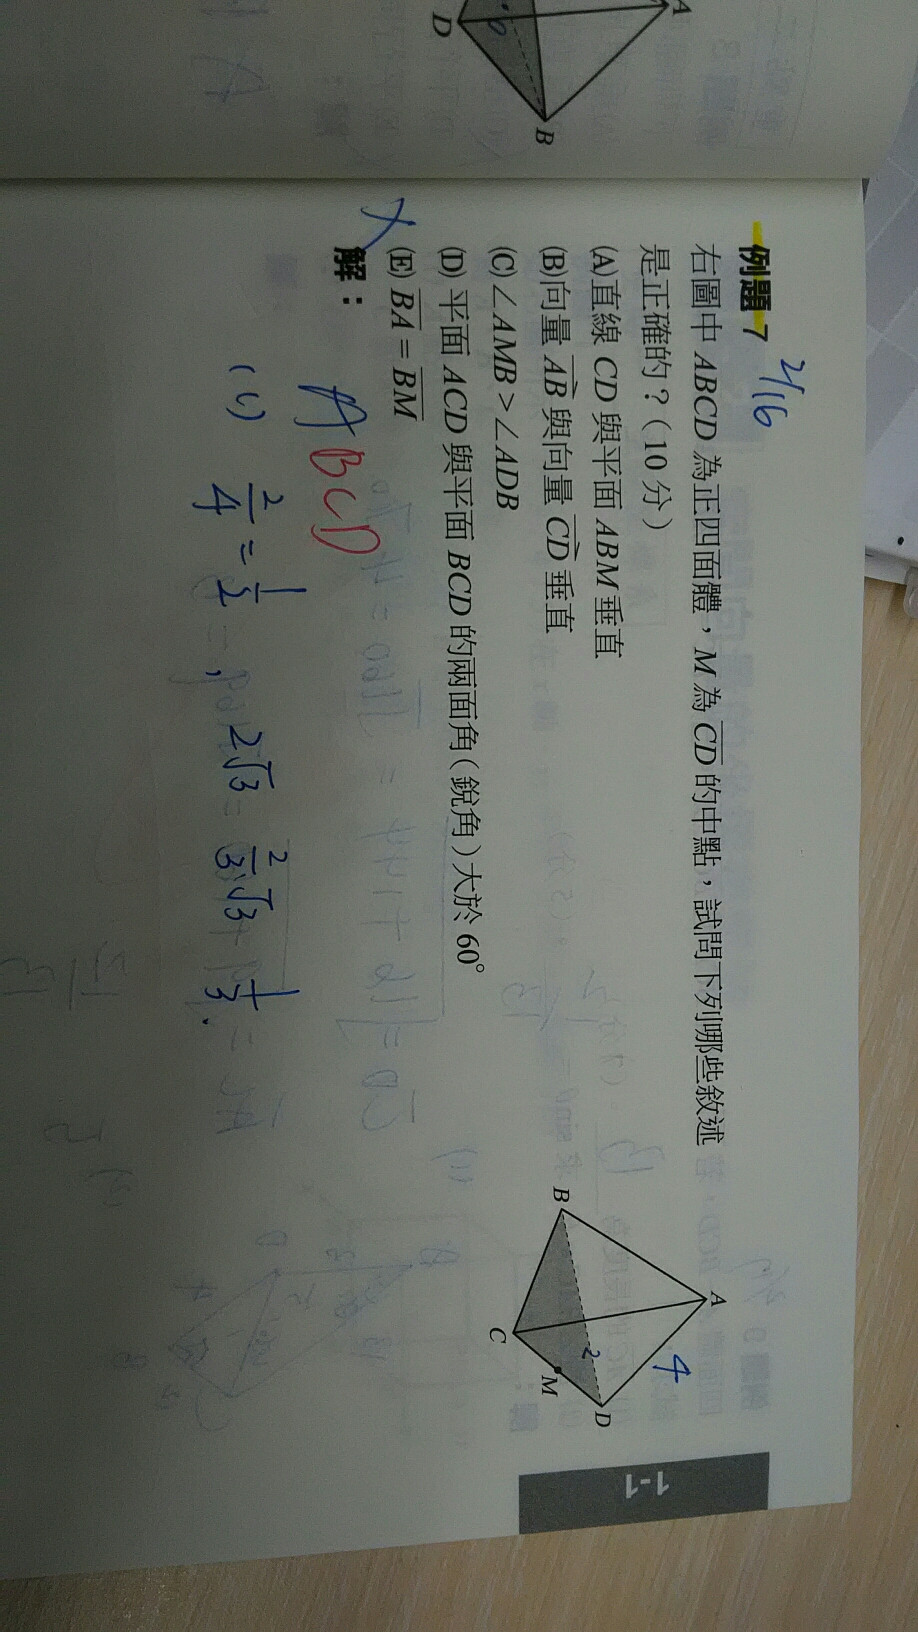 D
A
B
例題 7
2/16
右圖中 ABCD 為正四面體，M 為 CD 的中點，試問下列哪些敘述
是正確的？（10 分）
(A)直線 CD 與平面 ABM 垂直
(B)向量 AB 與向量 CD 垂直
(C)∠AMB > ∠ADB
(D)平面 ACD 與平面 BCD 的兩面角（銳角）大於 60°
(E) BA = BM
A
B
C
M
D
4
2
解：
A BCD
2/4 = 1/2 , 2√3
1-1